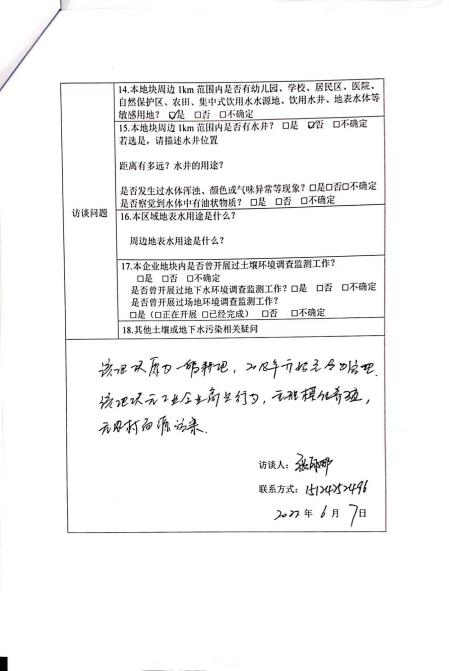 14.本地块周边 1km 范围内是否有幼儿园、学校、居民区、医院、
自然保护区、农田、集中式饮用水水源地、饮用水井、地表水体等
敏感用地？ ☑是 □否 □不确定
15.本地块周边 1km 范围内是否有水井？ □是 ☑否 □不确定
若选是，请描述水井位置
距离有多远？水井的用途？
是否发生过水体浑浊、颜色或气味异常等现象？□是□否□不确定
是否察觉到水体中有油状物质？ □是 □否 □不确定
访谈问题
16.本区域地表水用途是什么？
周边地表水用途是什么？
17.本企业地块内是否曾开展过土壤环境调查监测工作？
□是 □否 □不确定
是否曾开展过地下水环境调查监测工作？□是 □否 □不确定
是否曾开展过场地环境调查监测工作？
□是（□正在开展 □已经完成） □否 □不确定
18.其他土壤或地下水污染相关疑问
该地块原为一般耕地，2018年开始至今为空地.
该地块无工业企业商生行为，无规模化养殖，
访谈人：
联系方式：15124252496
2022 年 6 月 7日